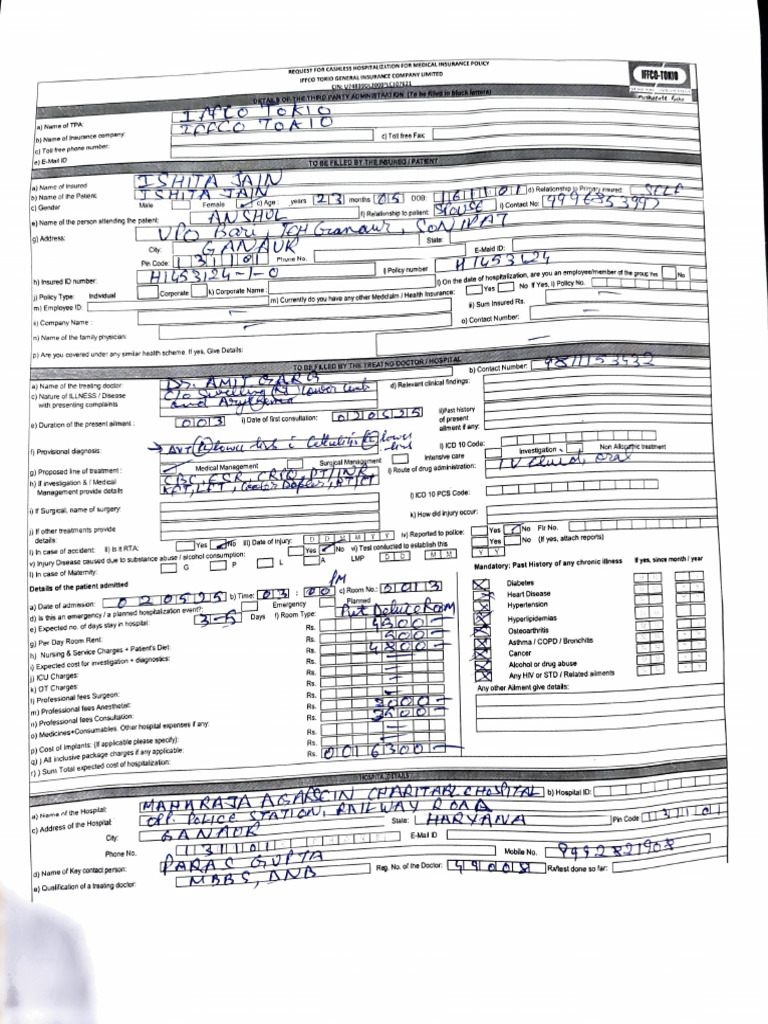 REQUEST FOR CASHLESS HOSPITALIZATION FOR MEDICAL INSURANCE POLICY
IFFCO TOKIO GENERAL INSURANCE COMPANY LIMITED
IFFCO-TOKIO
DETAILS OF THE THIRD PARTY ADMINISTRATION (To be filled in block letters)
a) Name of TPA: IFFCO TOKIO
b) Name of Insurance company: IFFCO TOKIO
c) Toll free phone number: c) Toll free Fax
e) E-Mail ID
TO BE FILLED BY THE INSURED / PATIENT
a) Name of Insured ISHITA JAIN
b) Name of the Patient: ISHITA JAIN
c) Gender Male Female c) Age: years 23 months 05 DOB: 161101 d) Relationship to Primary insured: SELF
e) Name of the person attending the patient: ANSHUL f) Relationship to patient: SPOUSE i) Contact No:
g) Address: VPO Bari, Teh Ganaur, SONIPAT
City: GANAUR State:
Pin Code: 131101 Phone No. E-Maid ID:
h) Insured ID number: H1453124-1-0 i) Policy number H1453124
j) Policy Type: Individual Corporate k) Corporate Name: l) On the date of hospitalization, are you an employee/member of the group Yes No
m) Employee ID: m) Currently do you have any other Mediclaim / Health Insurance: Yes No If Yes, i) Policy No.
ii) Company Name: – ii) Sum Insured Rs. –
n) Name of the family physician: o) Contact Number: –
p) Are you covered under any similar health scheme. If yes, Give Details: –
TO BE FILLED BY THE TREATING DOCTOR / HOSPITAL
a) Name of the treating doctor: Dr. AMIT GARG b) Contact Number: 9811153432
c) Nature of ILLNESS / Disease with presenting complaints C/o Swelling Rt lower limb and d) Relevant clinical findings:
e) Duration of the present ailment: 003 i) Date of first consultation: 020525 ii)Past history of present ailment if any:
f) Provisional diagnosis: lower limb c Cellulitis lower limb i) ICD 10 Code:
g) Proposed line of treatment: Medical Management Surgical Management Intensive care Investigation Non Allopathic treatment
h) If investigation & / Medical Management provide details CBC, ESR, CRP, PT/INR KFT, LFT, Color Dopler, i) Route of drug administration: IV fluid, oral
i) If Surgical, name of surgery: i) ICD 10 PCS Code:
j) If other treatments provide details: k) How did injury occur:
l) In case of accident: ii) Is it RTA: Yes No iii) Date of Injury: D D M M Y Y iv) Reported to police: Yes No Fir No.
v) Injury Disease caused due to substance abuse / alcohol consumption: Yes No v) Test conducted to establish this Yes No (If yes, attach reports)
l) In case of Maternity: G P L A LMP D D M M Y Y
Details of the patient admitted Mandatory: Past History of any chronic illness If yes, since month / year
a) Date of admission: 020525 b) Time: 03:00 PM c) Room No: 0013
d) Is this an emergency / a planned hospitalization event?: Emergency Planned
e) Expected no. of days stay in hospital: 3-5 Days f) Room Type: Pvt Deluxe Room
g) Per Day Room Rent: Rs. 4300
h) Nursing & Service Charges + Patient's Diet: Rs. 500
i) Expected cost for investigation + diagnostics: Rs. 4800
j) ICU Charges: Rs. –
k) OT Charges: Rs. –
l) Professional fees Surgeon: Rs. –
m) Professional fees Anesthetist: Rs.
n) Professional fees Consultation: Rs.
o) Medicines+Consumables. Other hospital expenses if any: Rs.
p) Cost of Implants: (If applicable please specify): Rs. –
q) All inclusive package charges if any applicable: Rs. –
r) Sum Total expected cost of hospitalization: Rs. 0016300
Diabetes
Heart Disease
Hypertension
Hyperlipidemias
Osteoarthritis
Asthma / COPD / Bronchitis
Cancer
Alcohol or drug abuse
Any HIV or STD / Related ailments
Any other Ailment give details:
HOSPITAL DETAILS
a) Name of the Hospital: MAHARAJA AGARSEIN CHARITABLE HOSPITAL b) Hospital ID:
c) Address of the Hospital: OPP. POLICE STATION, RAILWAY ROAD
City: GANAUR State: HARYANA Pin Code 131101
Phone No. 131101 E-Mail ID
d) Name of Key contact person: PARAS GUPTA Mobile No. 9992821908
e) Qualification of a treating doctor: MBBS, DNB Reg. No. of the Doctor: 49008